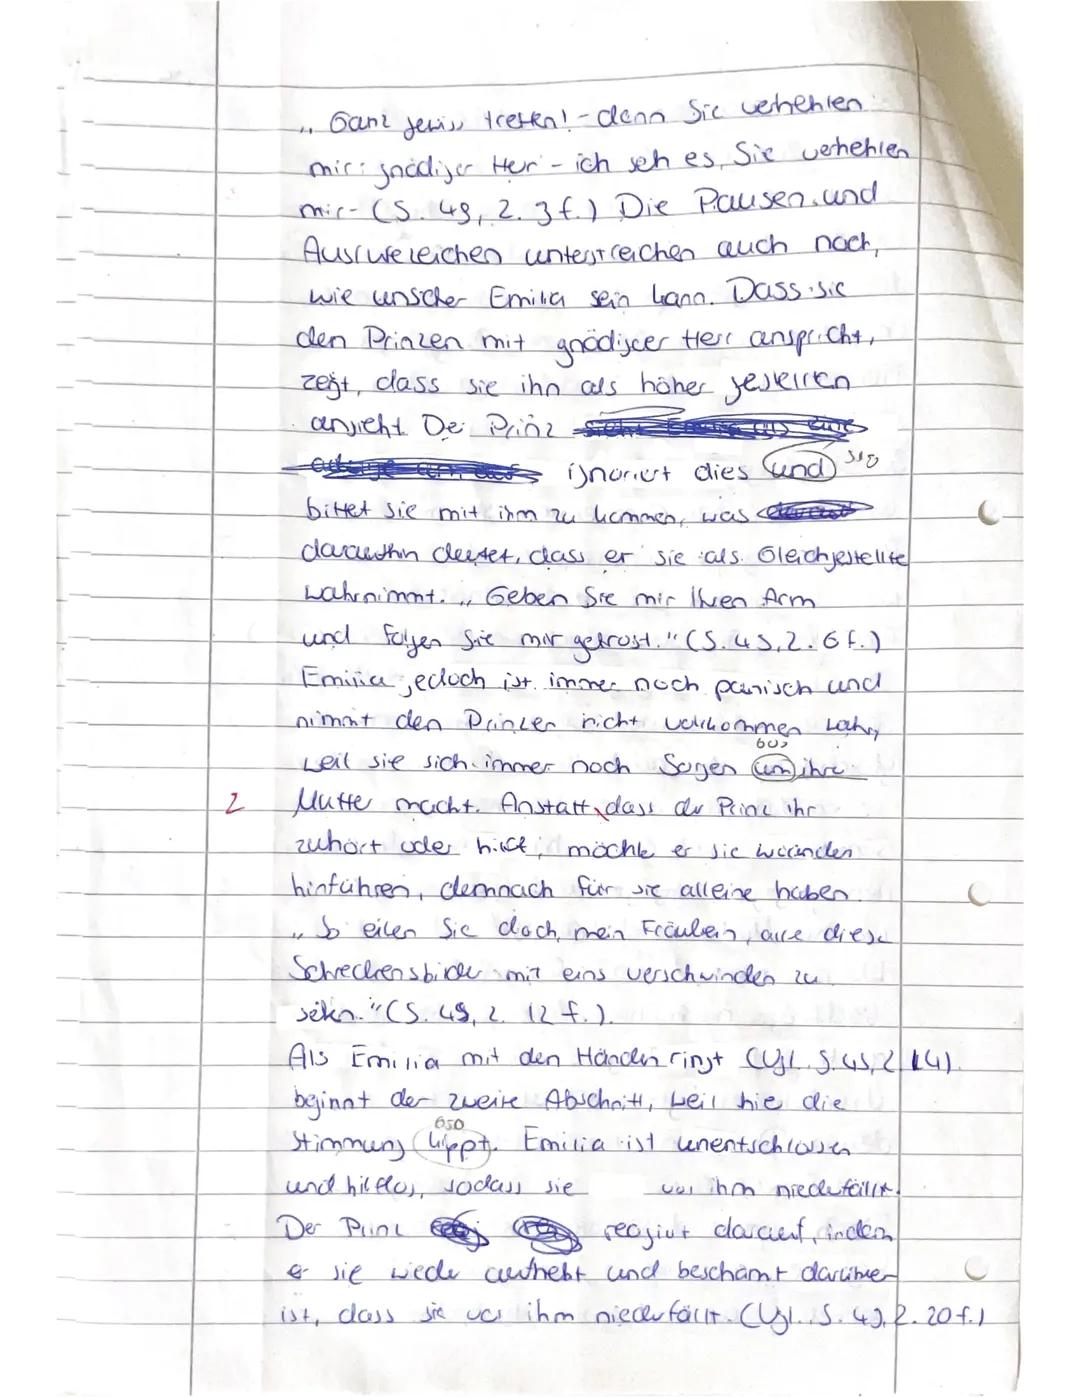 „ Ganz gewiss treffen! - denn Sie verhehlen
mir; gnädiger Herr - ich seh es, Sie verhehlen
mir- (S. 49, Z. 3 f.) Die Pausen und
Ausrufezeichen unterstreichen auch noch,
wie unsicher Emilia sein kann. Dass sie
den Prinzen mit gnädiger Herr anspricht,
zeigt, dass sie ihn als höher gestellten
ansieht De Prinz
ignoriert dies und
bittet sie mit ihm zu kommen, was
daraufhin deutet, dass er sie als Gleichgestellte
wahrnimmt. „ Geben Sie mir Ihren Arm
und folgen Sie mir getrost." (S. 49, Z. 6 f.)
Emilia jedoch ist immer noch panisch und
nimmt den Prinzen nicht vollkommen wahr,
603
weil sie sich immer noch Sorgen um ihre
2 Mutter macht. Anstatt, dass der Prinz ihr
zuhört oder hilft, möchte er sie woanders
hinführen, demnach für sie alleine haben.
„ So eilen Sie doch, mein Fräulein, alle diese
Schreckensbilder mit eins verschwinden zu
sehen." (S. 49, Z. 12 f.).
Als Emilia mit den Händen ringt (Vgl. S. 49, Z. 14)
beginnt der zweite Abschnitt, weil hie die
650
Stimmung kippt. Emilia ist unentschlossen
und hilflos, sodass sie vor ihm niederfällt.
Der Prinz reagiert darauf, indem
er sie wieder aufhebt und beschämt darüber
ist, dass sie vor ihm niederfällt. (Vgl. S. 49, Z. 20 f.)